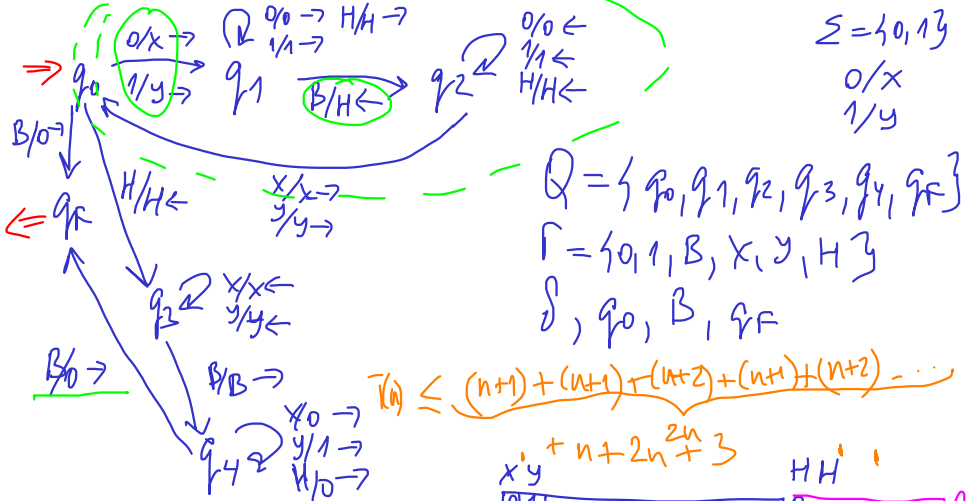 0/x →
1/y →
0/0 → H/H →
1/1 →
0/0 ←
1/1 ←
H/H ←
⇒ q0
q1
B/H ←
q2
Σ = {0,1}
0/x
1/y
B/0 →
H/H ←
x/x →
y/y →
qF
Q = {q0, q1, q2, q3, q4, qF}
Γ = {0, 1, B, X, Y, H}
δ, q0, B, qF
q3
x/x ←
y/y ←
B/0 →
B/B →
q4
x/0 →
y/1 →
H/0 →
T(n) ≤ (n+1) + (n+1) + (n+2) + (n+1) + (n+2) - ...
2n
+ n + 2n + 3
x'y
HH'